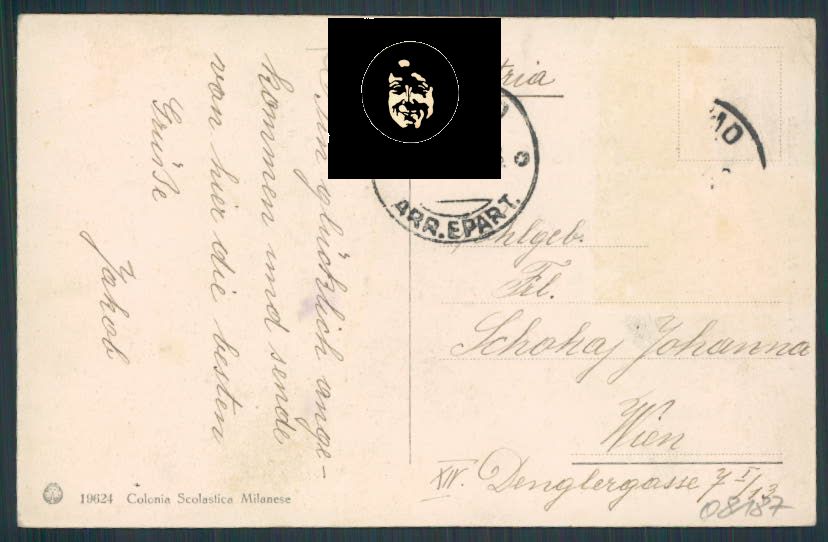 bin glücklich ange-
kommen und sende
von hier die besten
Grüße
Jakob
ARR.EPART.
Frl.
Schohaj Johanna
Wien
XIV. Denglergasse 7 I/13
08187
19624 Colonia Scolastica Milanese